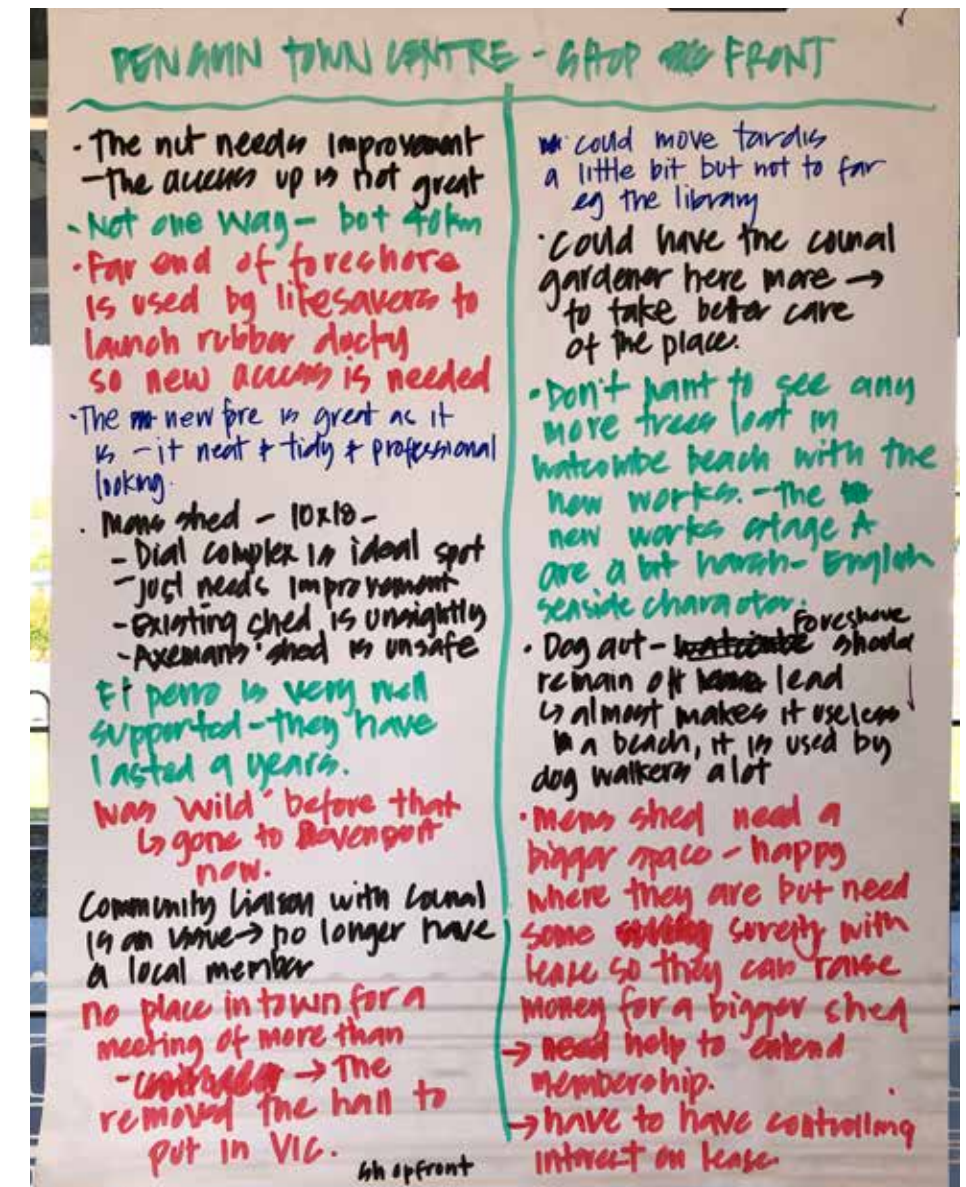 PENGUIN TOWN CENTRE - SHOP FRONT
· The nut needs improvement
- The access up is not great
· Not one way - bot 40km
· Far end of foreshore
is used by lifesavers to
launch rubber docky
so new access is needed
· The new pre is great as it
is - it neat + tidy + professional
looking.
· Mens shed - 10x18 -
- Dial complex is ideal spot
- just needs improvement
- Existing shed is unsightly
- Axemans' shed is unsafe
El perro is very well
supported - they have
lasted 9 years.
was 'wild' before that
↳ gone to Devenport
now.
Community liaison with council
is an issue → no longer have
a local member
no place in town for a
meeting of more than
→ The
removed the hall to
put in VIC.
shopfront
· could move tardis
a little bit but not to far
eg the library
· Could have the council
gardener here more →
to take better care
of the place.
· Don't want to see any
more trees lost in
watcombe beach with the
new works. - the
new works stage A
are a bit harsh - English
seaside character.
· Dog act - foreshore should
remain off lead
↳ almost makes it useless
a beach, it is used by
dog walkers a lot
· Mens shed need a
bigger space - happy
where they are but need
some surety with
lease so they can raise
money for a bigger shed
→ need help to extend
membership.
→ have to have controlling
interest on lease.